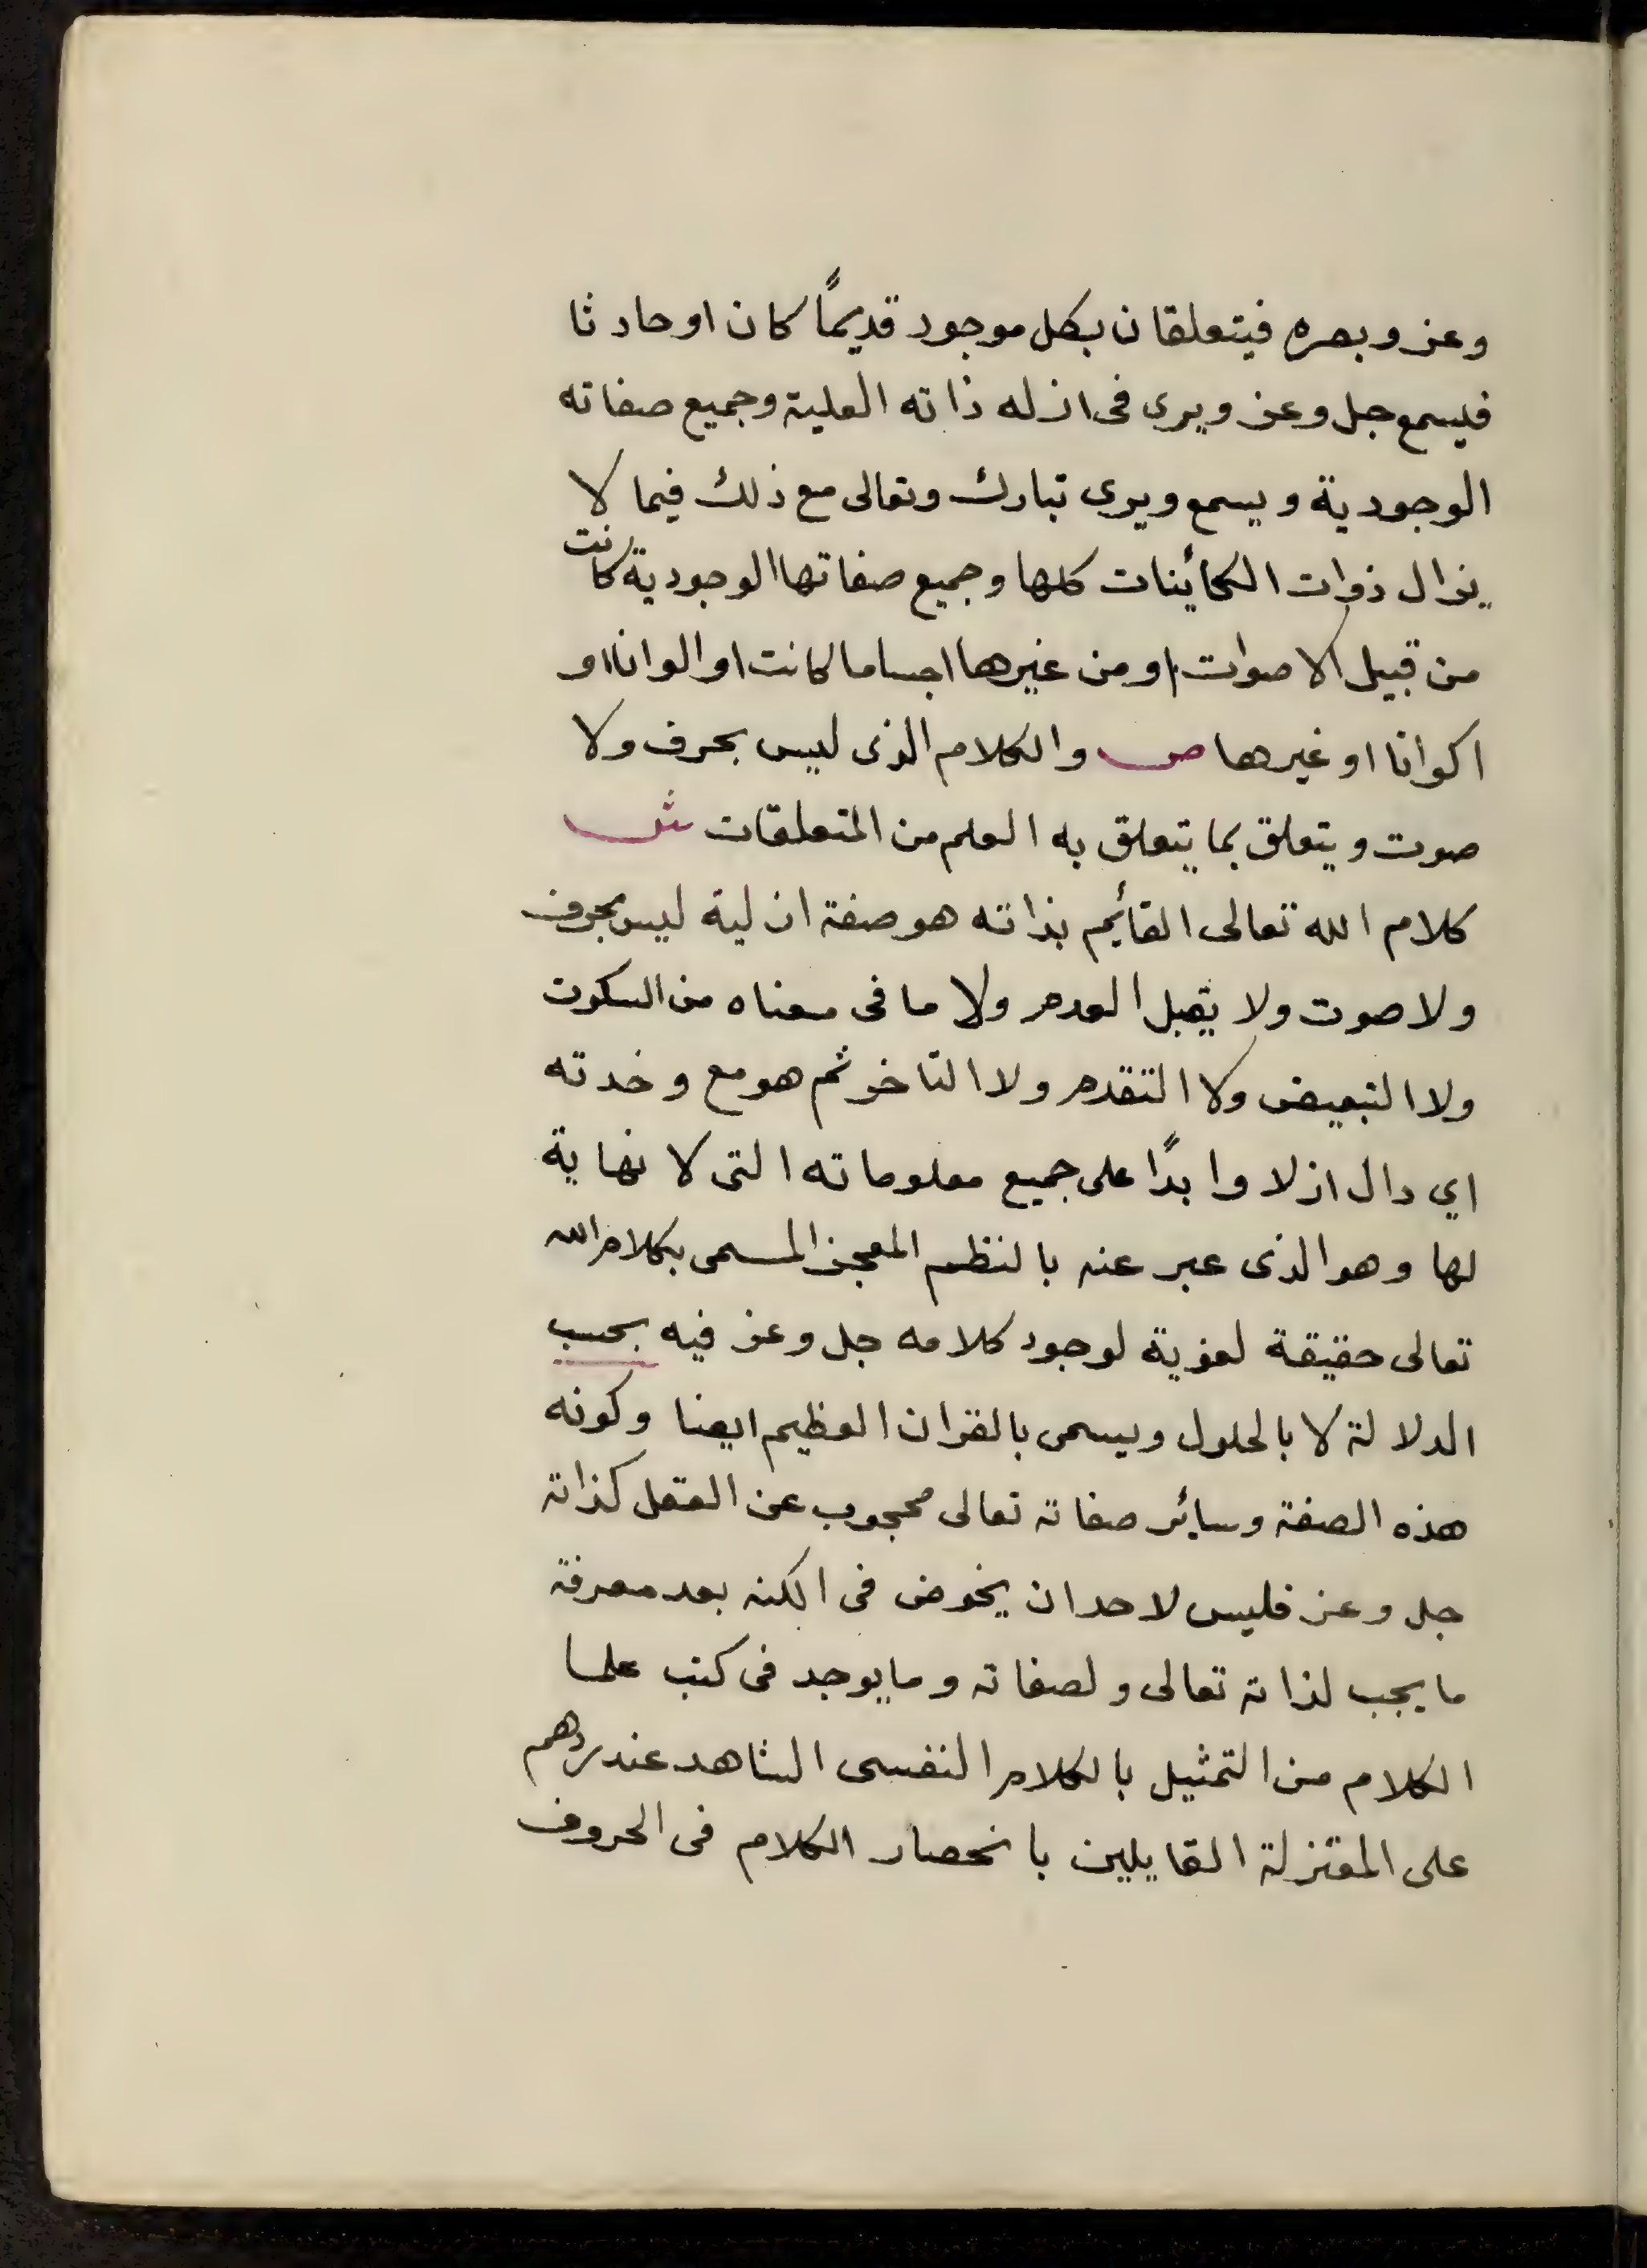 وعز وبصره فيتعلقان بكل موجود قديمًا كان او حادثا
فيسمع جل وعز ويرى فى ازله ذاته العلية وجميع صفاته
الوجودية ويسمع ويرى تبارك وتعالى مع ذلك فيما لا
يزال ذوات الكائنات كلها وجميع صفاتها الوجودية كانت
من قبيل الاصوات او من غيرها اجساما كانت او الوانا او
اكوانا او غيرها ص والكلام الذى ليس بحرف ولا
صوت ويتعلق بما يتعلق به العلم من المتعلقات ش
كلام الله تعالى القائيم بذاته هو صفة ازلية ليس بحرف
ولا صوت ولا يقبل العدم ولا ما فى معناه من السكوت
ولا التبعيض ولا التقدم ولا التاخر ثم هو مع وحدته
اي دال ازلا وابدًا على جميع معلوماته التى لا نهاية
لها وهو الذى عبر عنه بالنظم المعجز المسمى بكلام الله
تعالى حقيقة لغوية لوجود كلامه جل وعز فيه بحسب
الدلالة لا بالحلول ويسمى بالقران العظيم ايضا وكونه
هذه الصفة وسائر صفاته تعالى محجوب عن العقل كذاته
جل وعز فليس لاحد ان يخوض فى الكنه بعد معرفة
ما يجب لذاته تعالى ولصفاته وما يوجد فى كتب علما
الكلام من التمثيل بالكلام النفسى الشاهد عند ردهم
على المعتزلة القايلين بانحصار الكلام فى الحروف